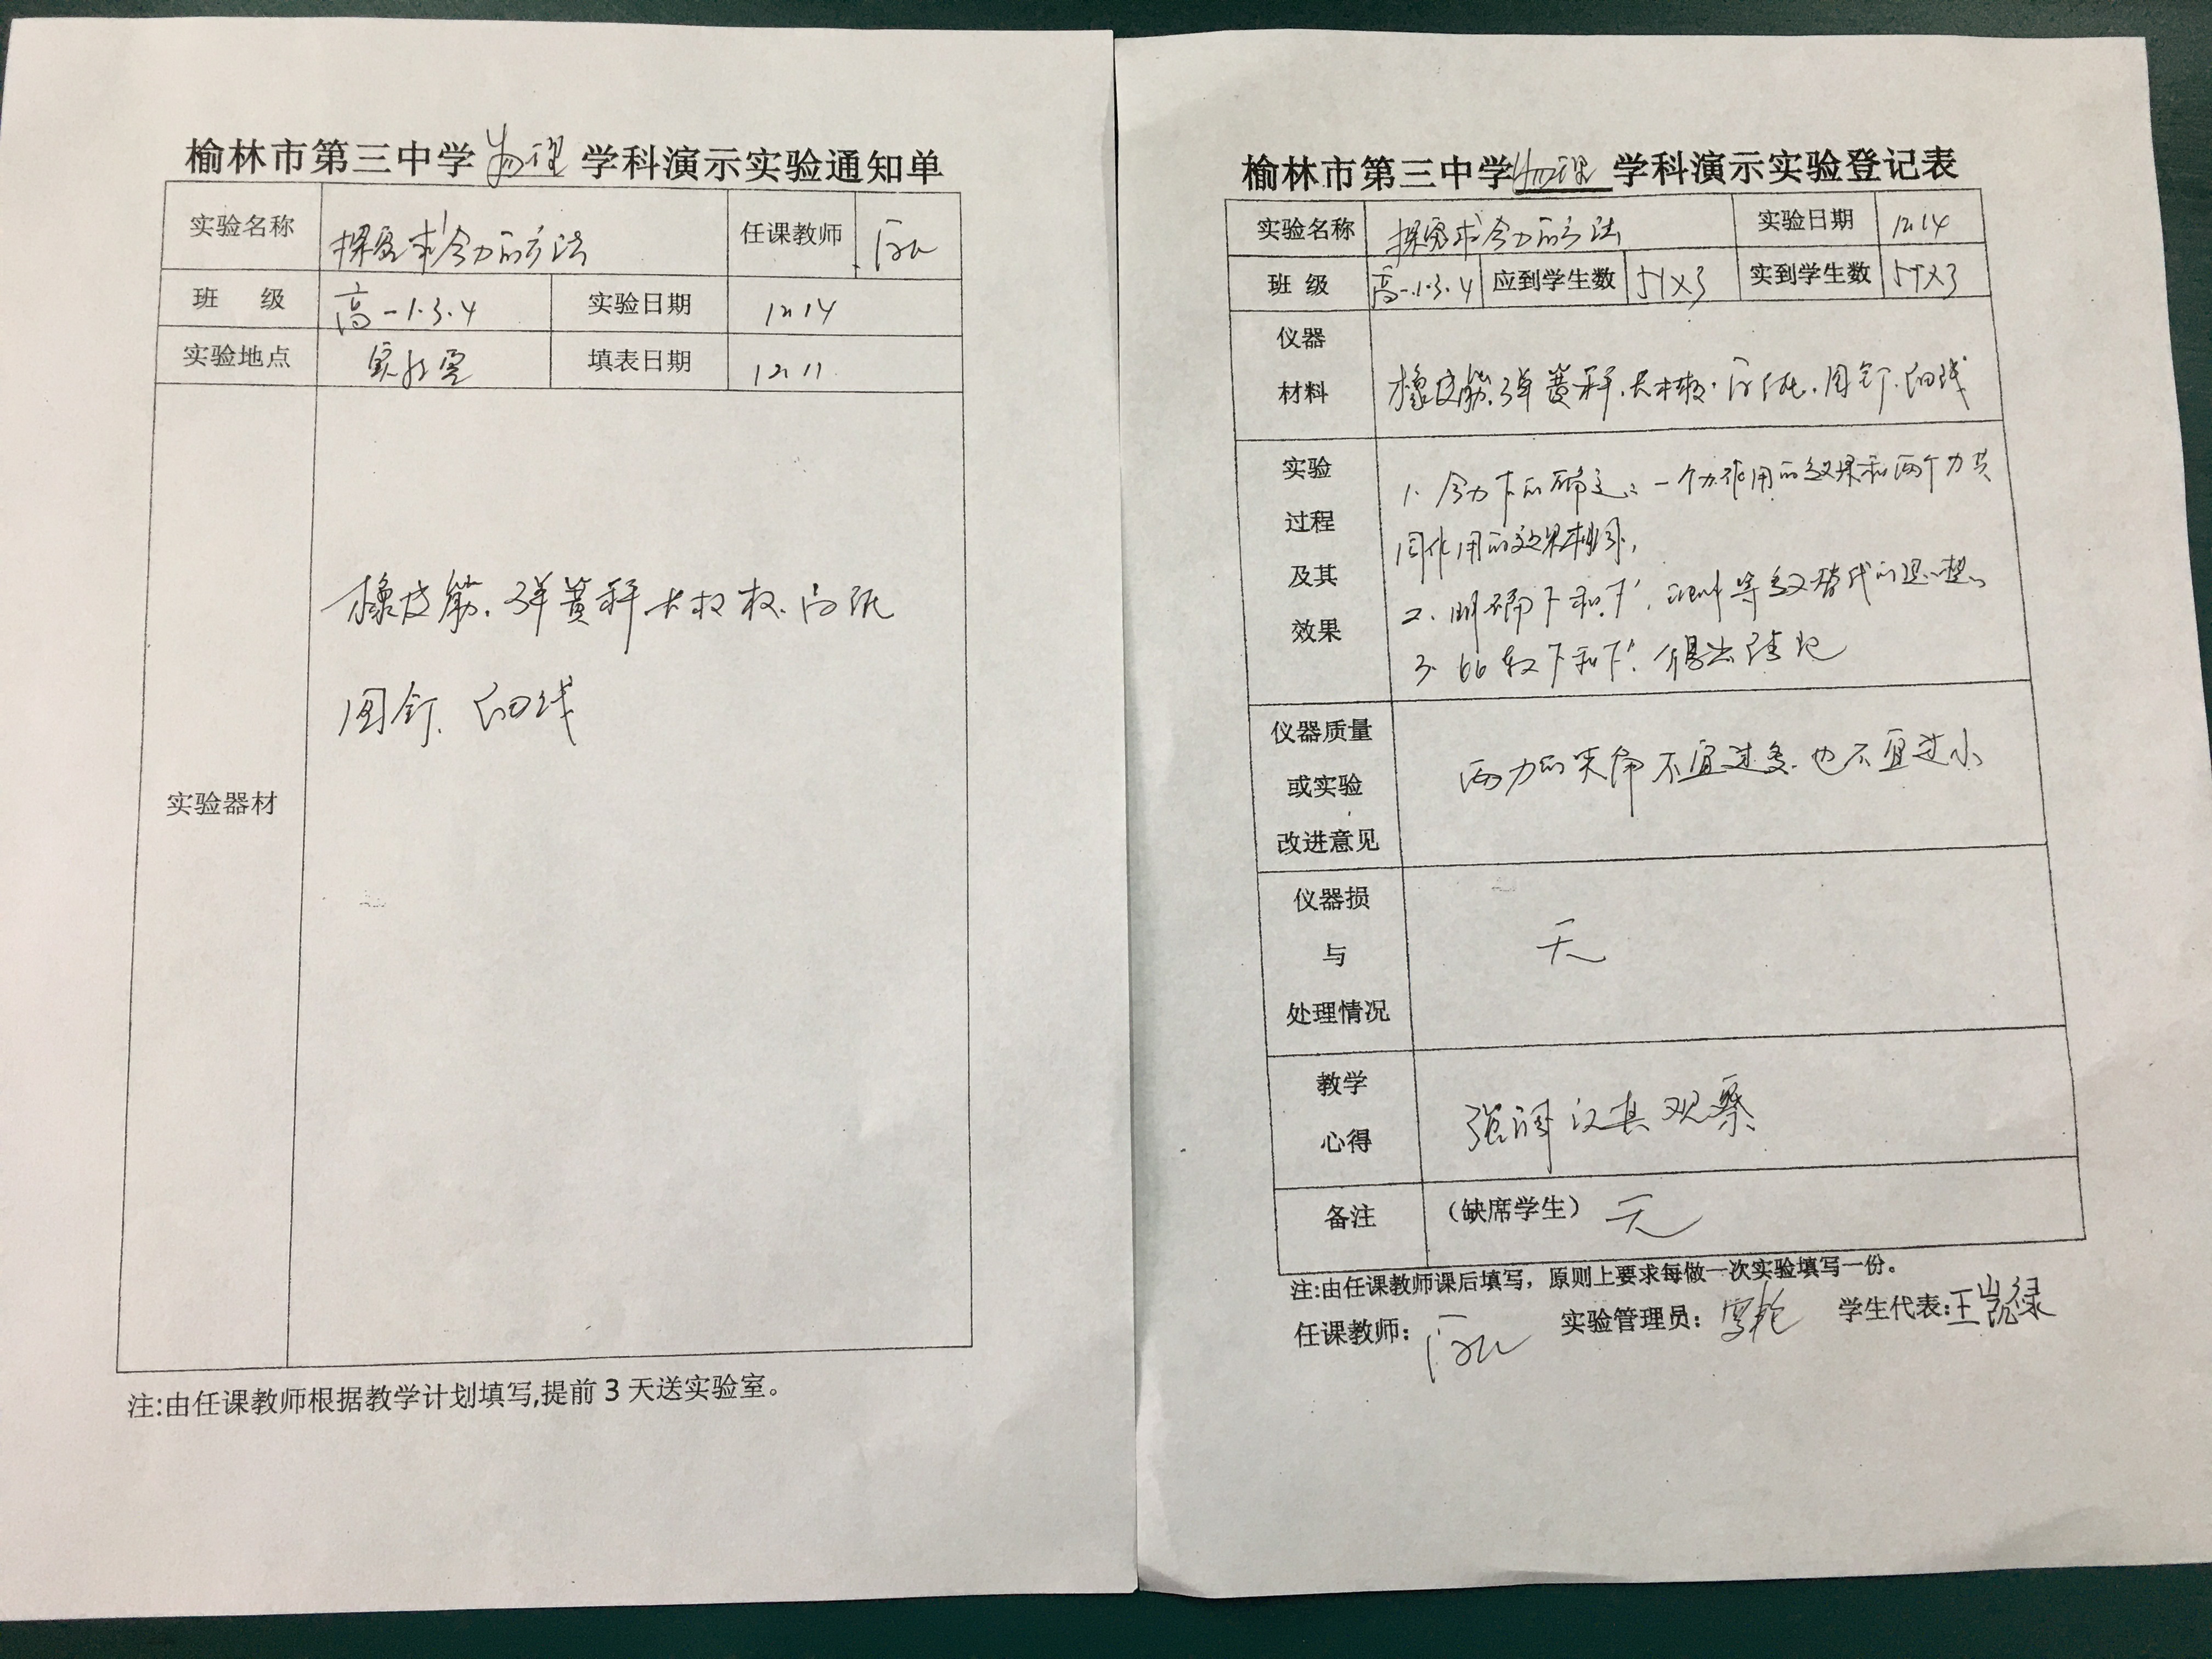 榆林市第三中学物理学科演示实验通知单
实验名称 探究求合力的方法 任课教师
班 级 高一1.3.4 实验日期 12.14
实验地点 实验室 填表日期 12.11
实验器材
橡皮筋.弹簧秤 木板.白纸
图钉.细线
注:由任课教师根据教学计划填写,提前3天送实验室。
榆林市第三中学物理学科演示实验登记表
实验名称 探究求合力的方法 实验日期 12.14
班 级 高一.1.3.4 应到学生数 54×3 实到学生数 54×3
仪器
材料
橡皮筋.弹簧秤.长木板.白纸.图钉.细线
实验
过程
及其
效果
1. 合力F的确定:一个力作用的效果和两个力共
同作用的效果相同,
2. 明确F和F′, 等效替代的思想
3. 比较F和F′.得出结论
仪器质量
或实验
改进意见
两力的夹角不宜过大.也不宜过小
仪器损
与
处理情况
无
教学
心得
强调认真观察
备注 (缺席学生) 无
注:由任课教师课后填写，原则上要求每做一次实验填写一份。
任课教师: 实验管理员: 学生代表:王凯绿